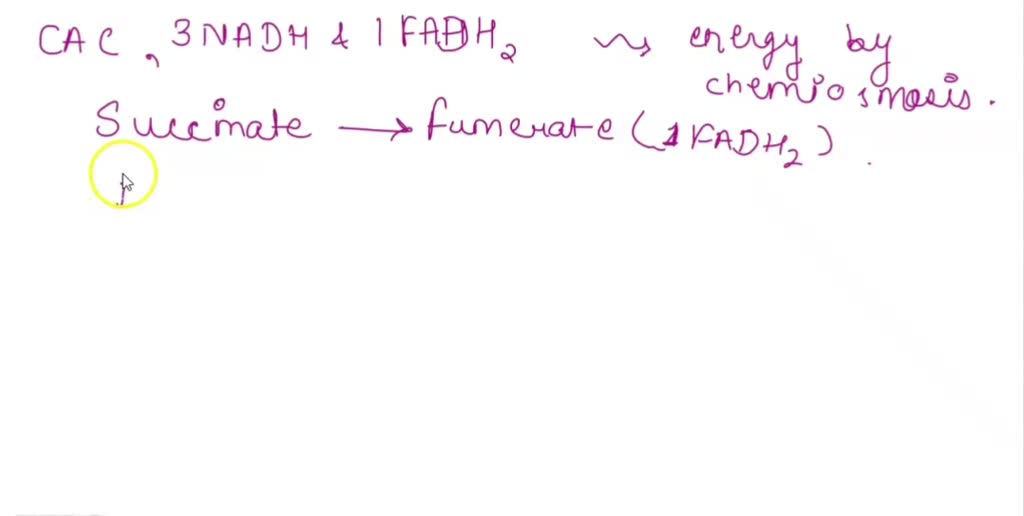 CAC, 3 NADH & 1 FADH2 ⇝ energy by
chemiosmosis.
Succinate → fumerate (1 FADH2).